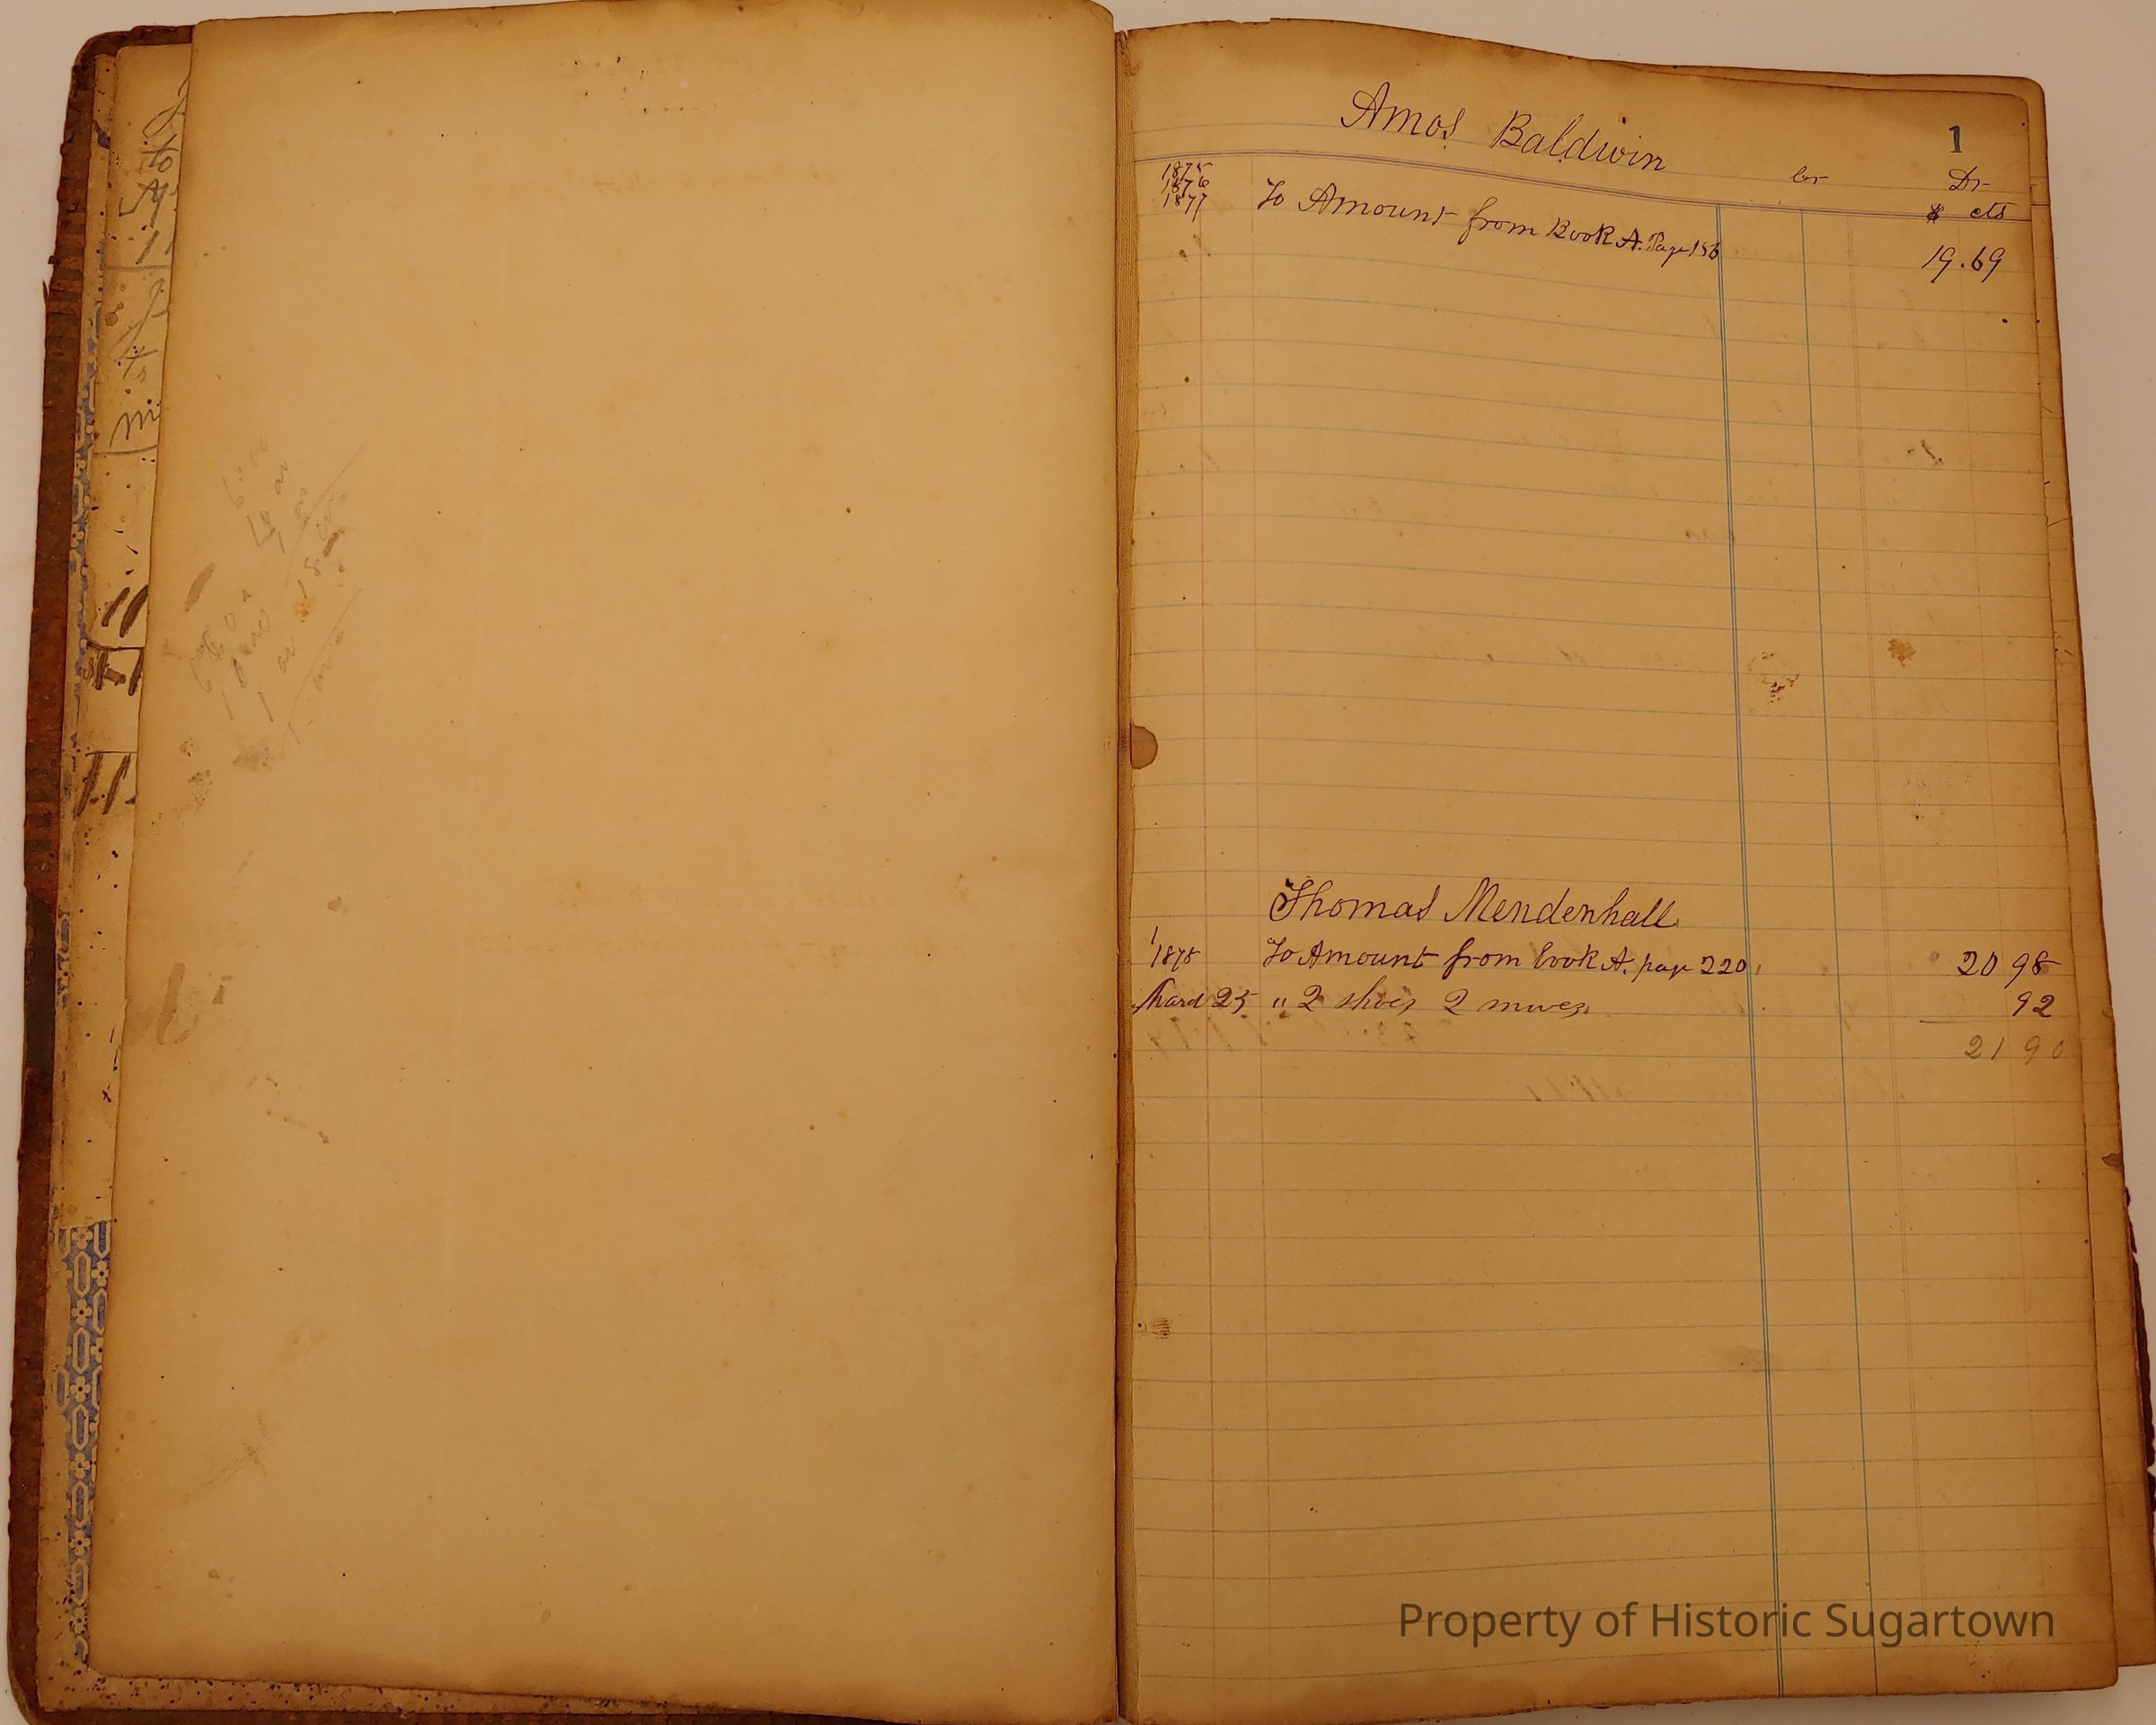 Amos Baldwin
1
Cr Dr
$ cts
1875
1876
1877 To Amount from Book A. Page 156 19.69
Thomas Mendenhall
1878 To Amount from book A. page 220 20 98
March 25 " 2 shoes 2 moves 92
21 90
Property of Historic Sugartown